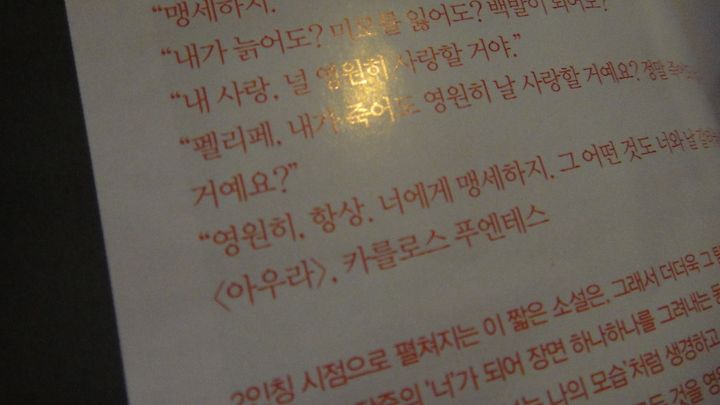 “맹세하지.
“내가 늙어도? 미모를 잃어도? 백발이 되어도?
“내 사랑, 널 영원히 사랑할 거야.”
“펠리페, 내가 죽어도 영원히 날 사랑할 거예요? 정말 죽어도
거예요?”
“영원히, 항상. 너에게 맹세하지. 그 어떤 것도 너와 날 갈라
〈아우라〉, 카를로스 푸엔테스
2인칭 시점으로 펼쳐지는 이 짧은 소설은, 그래서 더더욱 그
'너'가 되어 장면 하나하나를 그려내는
나의 모습'처럼 생경하고
것을